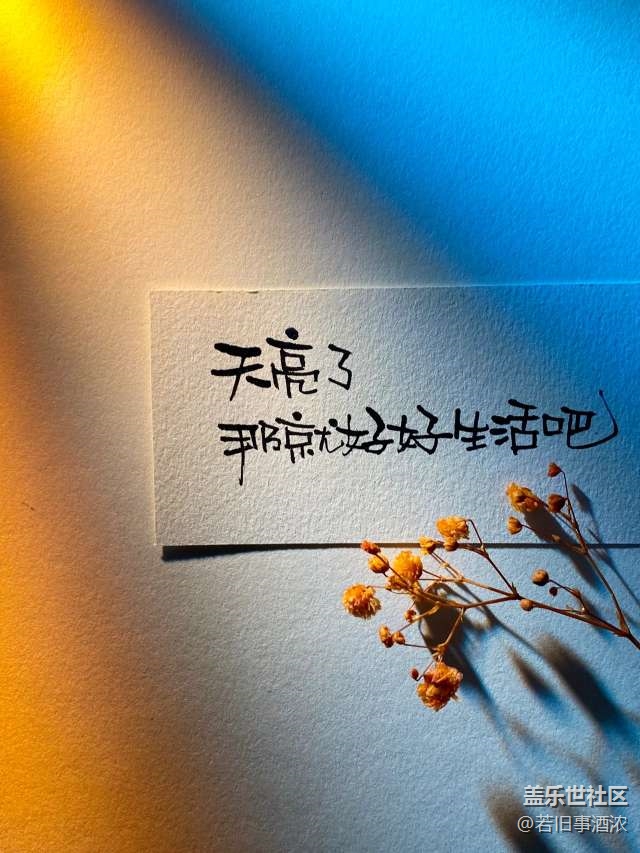 天亮了
那就好好生活吧
盖乐世社区
@若旧事酒浓